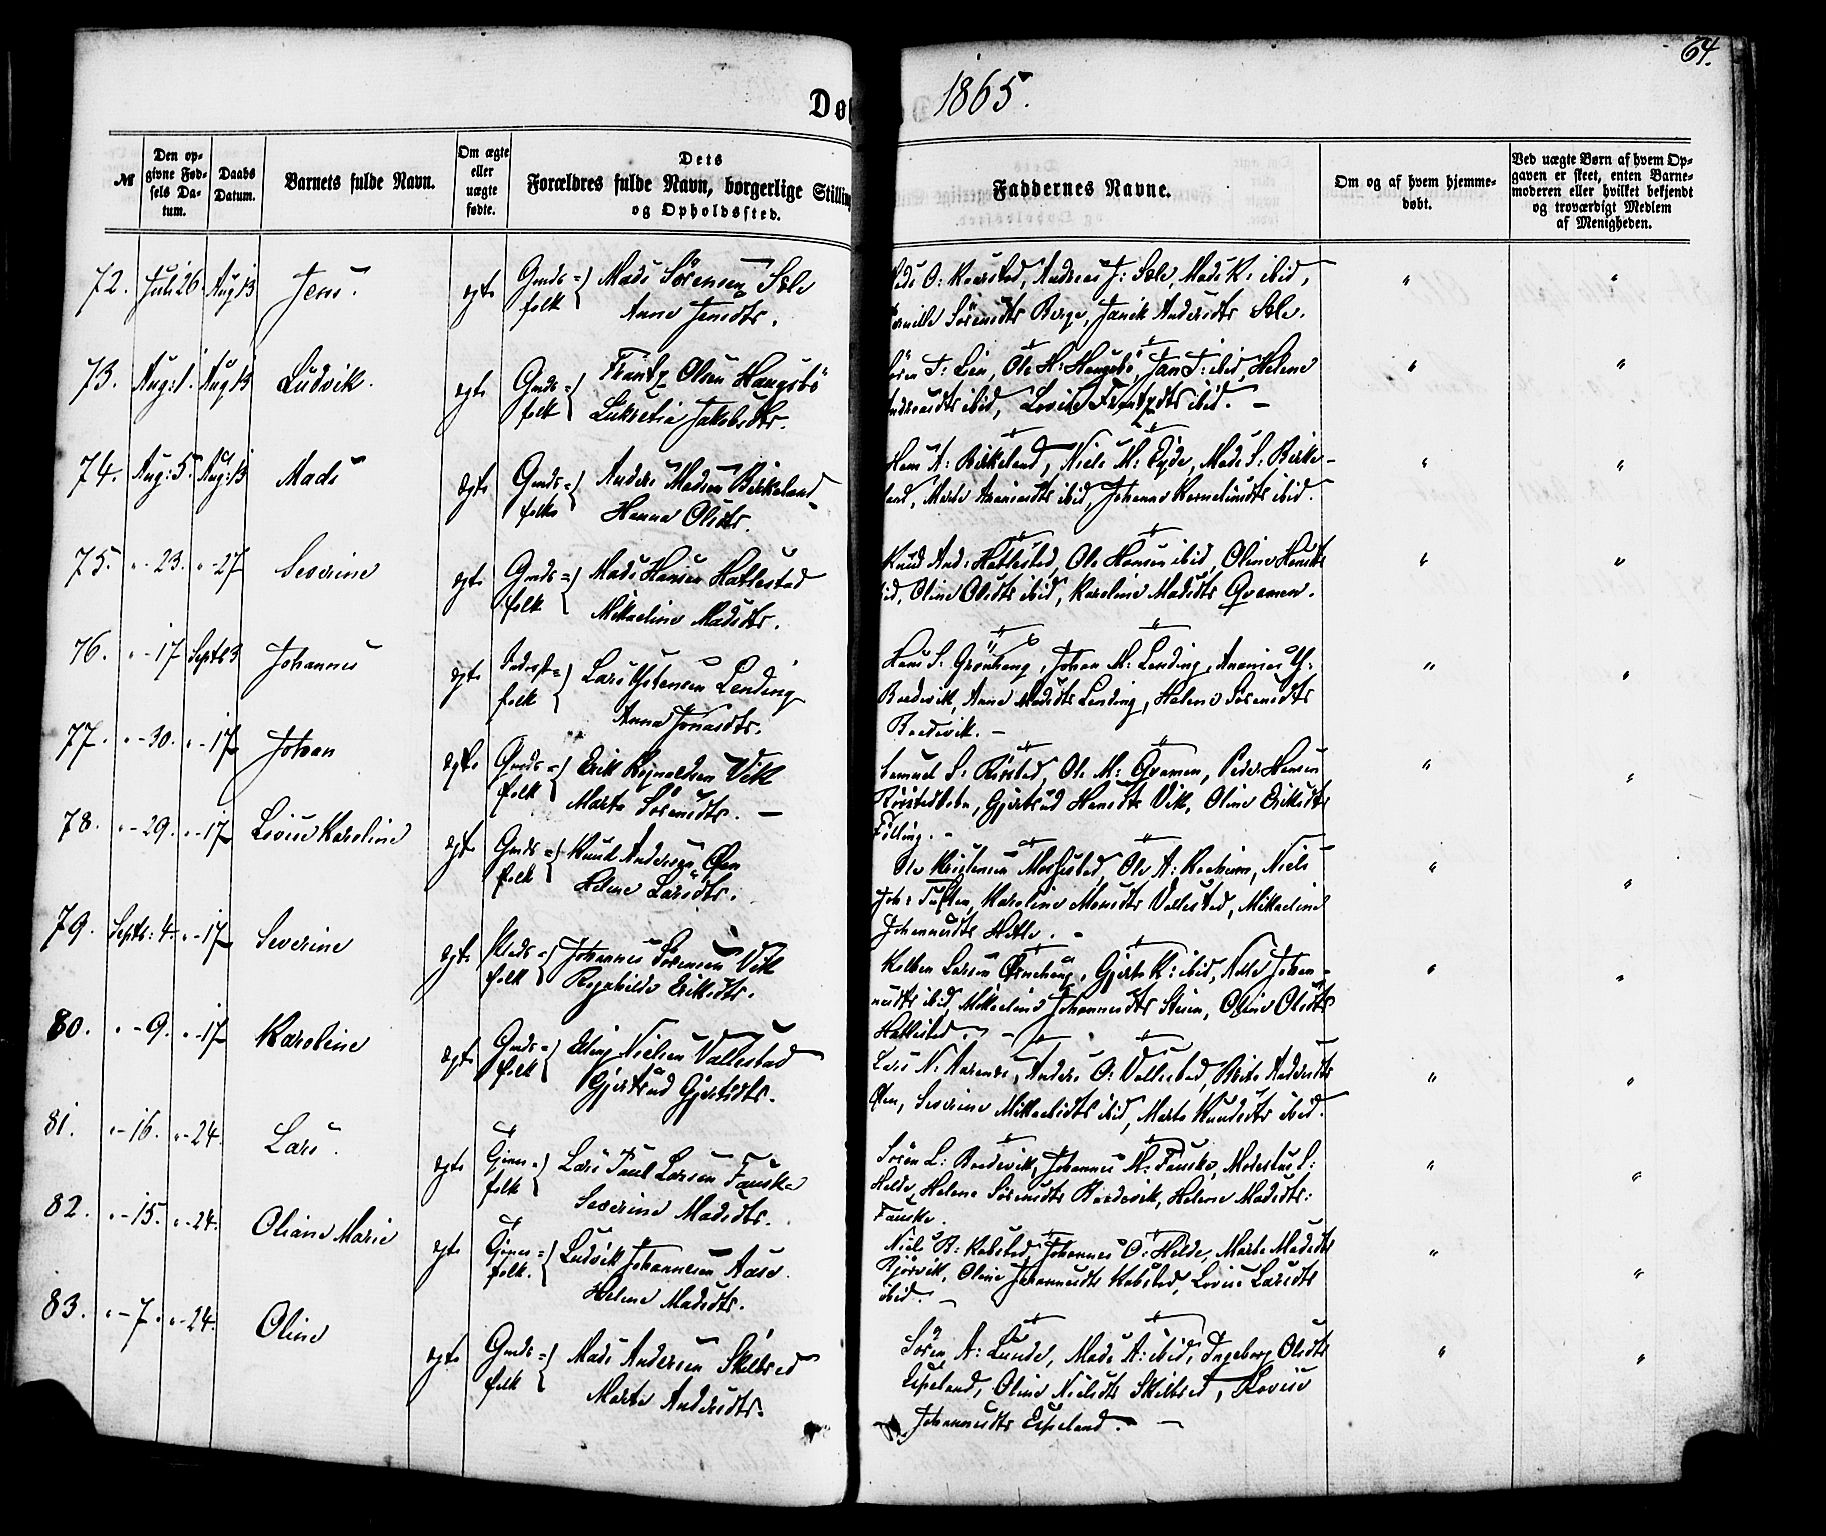 64.
Do
1865.
№
Den op-
givne Fød-
sels Da-
tum.
Daabs
Datum.
Barnets fulde Navn.
Om ægte
eller
uægte
fødte.
Dets
Forældres fulde Navn, borgerlige Stilling
og Opholdssted.
Faddernes Navne.
Om og af hvem hjemme-
døbt.
Ved uægte Børn af hvem Op-
gaven er skeet, enten Barne-
moderen eller hvilket bekjendt
og troværdigt Medlem
af Menigheden.
72. Juli 26 Aug 13 Jens. ægte Gmds= folk Mads Sörensen Sele
Anne Jensdtr.
Andreas J: Sele, Mads K: ibid,
Sörensdtr Berge, Andersdtr Sele.
73. Aug: 1. Aug 13 Ludvik. ægte Gmds= folk Frantz Olsen Haugsbö
Lukretia Jakobsdtr.
T: Lien, Ole H: Haugsbö, Jan J: ibid, Helene
ibid, Lovise Frantzdtr ibid. –
74. Aug: 5. Aug: 13 Mads ægte Gmds= folk Anders Madsen Birkeland
Hanna Olsdtr.
Hans A: Birkeland, Niels M: Eyde, Mads S: Birke-
land, Marte Ananiasdtr ibid, Johanne Korneliusdtr ibid.
75. " - 23. " - 27 Severine ægte Gmds= folk Mads Hansen Hatlestad
Mikaeline Madsdtr.
Knud And: Hatlestad, Ole Hansen ibid, Oline Hansdtr
ibid, Oline Olsdtr ibid, Karoline Madsdtr Qvamen.
76. " - 17 Septr 3 Johannes ægte Inderst= folk Lars Lending
Anna Jonasdtr.
Hans S: Grönhaug, Johan M: Lending, Ananias
Bredevik, Anne Madsdtr Lending, Helene Sörensdtr
Bredevik. –
77. " - 30. " - 17 Johan ægte Gmds= folk Erik Vik
Marte Sörensdtr. –
Samuel S: Rörstad, Ole M: Qvamen, Peder Hansen
Gjertrud Hansdtr Vik, Oline Eriksdtr
Fölling. –
78. " - 29. " - 17 Lovise Karoline ægte Gmds= folk Knud Andersen Öen
Helene Larsdtr.
Ole Kristensen Ole A: Niels
Joh: Tuften, Karoline Monsdtr Vallestad, Mikkeline
Johannesdtr Hatle. –
79. Septr: 4. " - 17 Severine ægte Plads= folk Johannes Sörensen Vik
Eriksdtr.
Kolben Larsen Grönhaug, Gjerte K: ibid, Johan-
nesdtr ibid, Mikaeline Johannesdtr Steien, Oline Olsdtr
Hatlestad. –
80. " - 9. " - 17 Karoline ægte Gmds= folk Elling Nielsen Vallestad
Gjertrud Gjertsdtr.
Lars N: Anders O: Vallestad, Brite Andersdtr
Öen, Severine Mikkelsdtr ibid, Marte Knudsdtr ibid.
81. " - 16. " - 24. Lars. ægte folk Lars Paul Larsen Fauske
Severine Madsdtr.
Sören L: Bredevik, Johannes M: Fauske, Modestus S:
Helde, Helene Sörensdtr Bredevik, Helene Madsdtr:
Fauske.
82. " - 15. " - 24. Oliane Marie ægte folk. Ludvik Johannesen Aase.
Helene Madsdtr.
Niels B: Kalstad, Johannes O: Helde, Marte Madsdtr
Oline Johannesdtr Kalstad, Lovise Larsdtr
ibid. –
83. " - 7. " - 24. Oline ægte Gmds= folk Mads Andersen Skilbred
Marte Andersdtr.
Sören A: Lunde, Mads A: ibid, Ingeborg Olsdtr
Espeland, Oline Nielsdtr Skilbred, Lovise
Johannesdtr Espeland. –